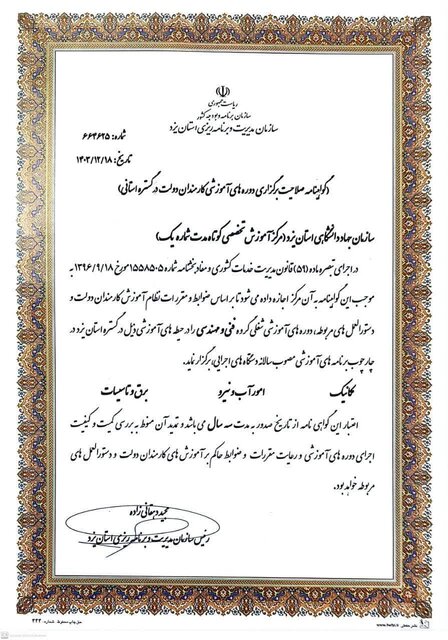 ریاست جمهوری
سازمان برنامه و بودجه کشور
سازمان مدیریت و برنامه ریزی استان یزد
شماره: ۶۶۴۶۲۵
تاریخ: ۱۴۰۳/۱۲/۱۸
(گواهینامه صلاحیت برگزاری دوره های آموزشی کارمندان دولت در گستره استانی)
سازمان جهاد دانشگاهی استان یزد (مرکز آموزش تخصصی کوتاه مدت شماره یک)
در اجرای تبصره ماده (۵۹) قانون مدیریت خدمات کشوری و مفاد بخشنامه شماره ۱۵۵۸۵۰۵ مورخ ۱۳۹۶/۹/۱۸ به
موجب این گواهینامه به آن مرکز اجازه داده می شود تا بر اساس ضوابط و مقررات نظام آموزش کارمندان دولت و
دستورالعمل های مربوطه، دوره های آموزشی شغلی گروه فنی و مهندسی را در حیطه های آموزشی ذیل در گستره استان یزد در
چارچوب برنامه های آموزشی مصوب سالانه دستگاه های اجرایی، برگزار نماید.
مکانیک امور آب و نیرو برق و تاسیسات
اعتبار این گواهی نامه از تاریخ صدور به مدت سه سال می باشد و تمدید آن منوط به بررسی کمیت و کیفیت
اجرای دوره های آموزشی و رعایت مقررات و ضوابط حاکم بر آموزش های کارمندان دولت و دستورالعمل های
مربوطه خواهد بود.
مجید دهقانی زاده
رئیس سازمان مدیریت و برنامه ریزی استان یزد
حق چاپ محفوظ شماره ۲۲۲
www.helfa.ir